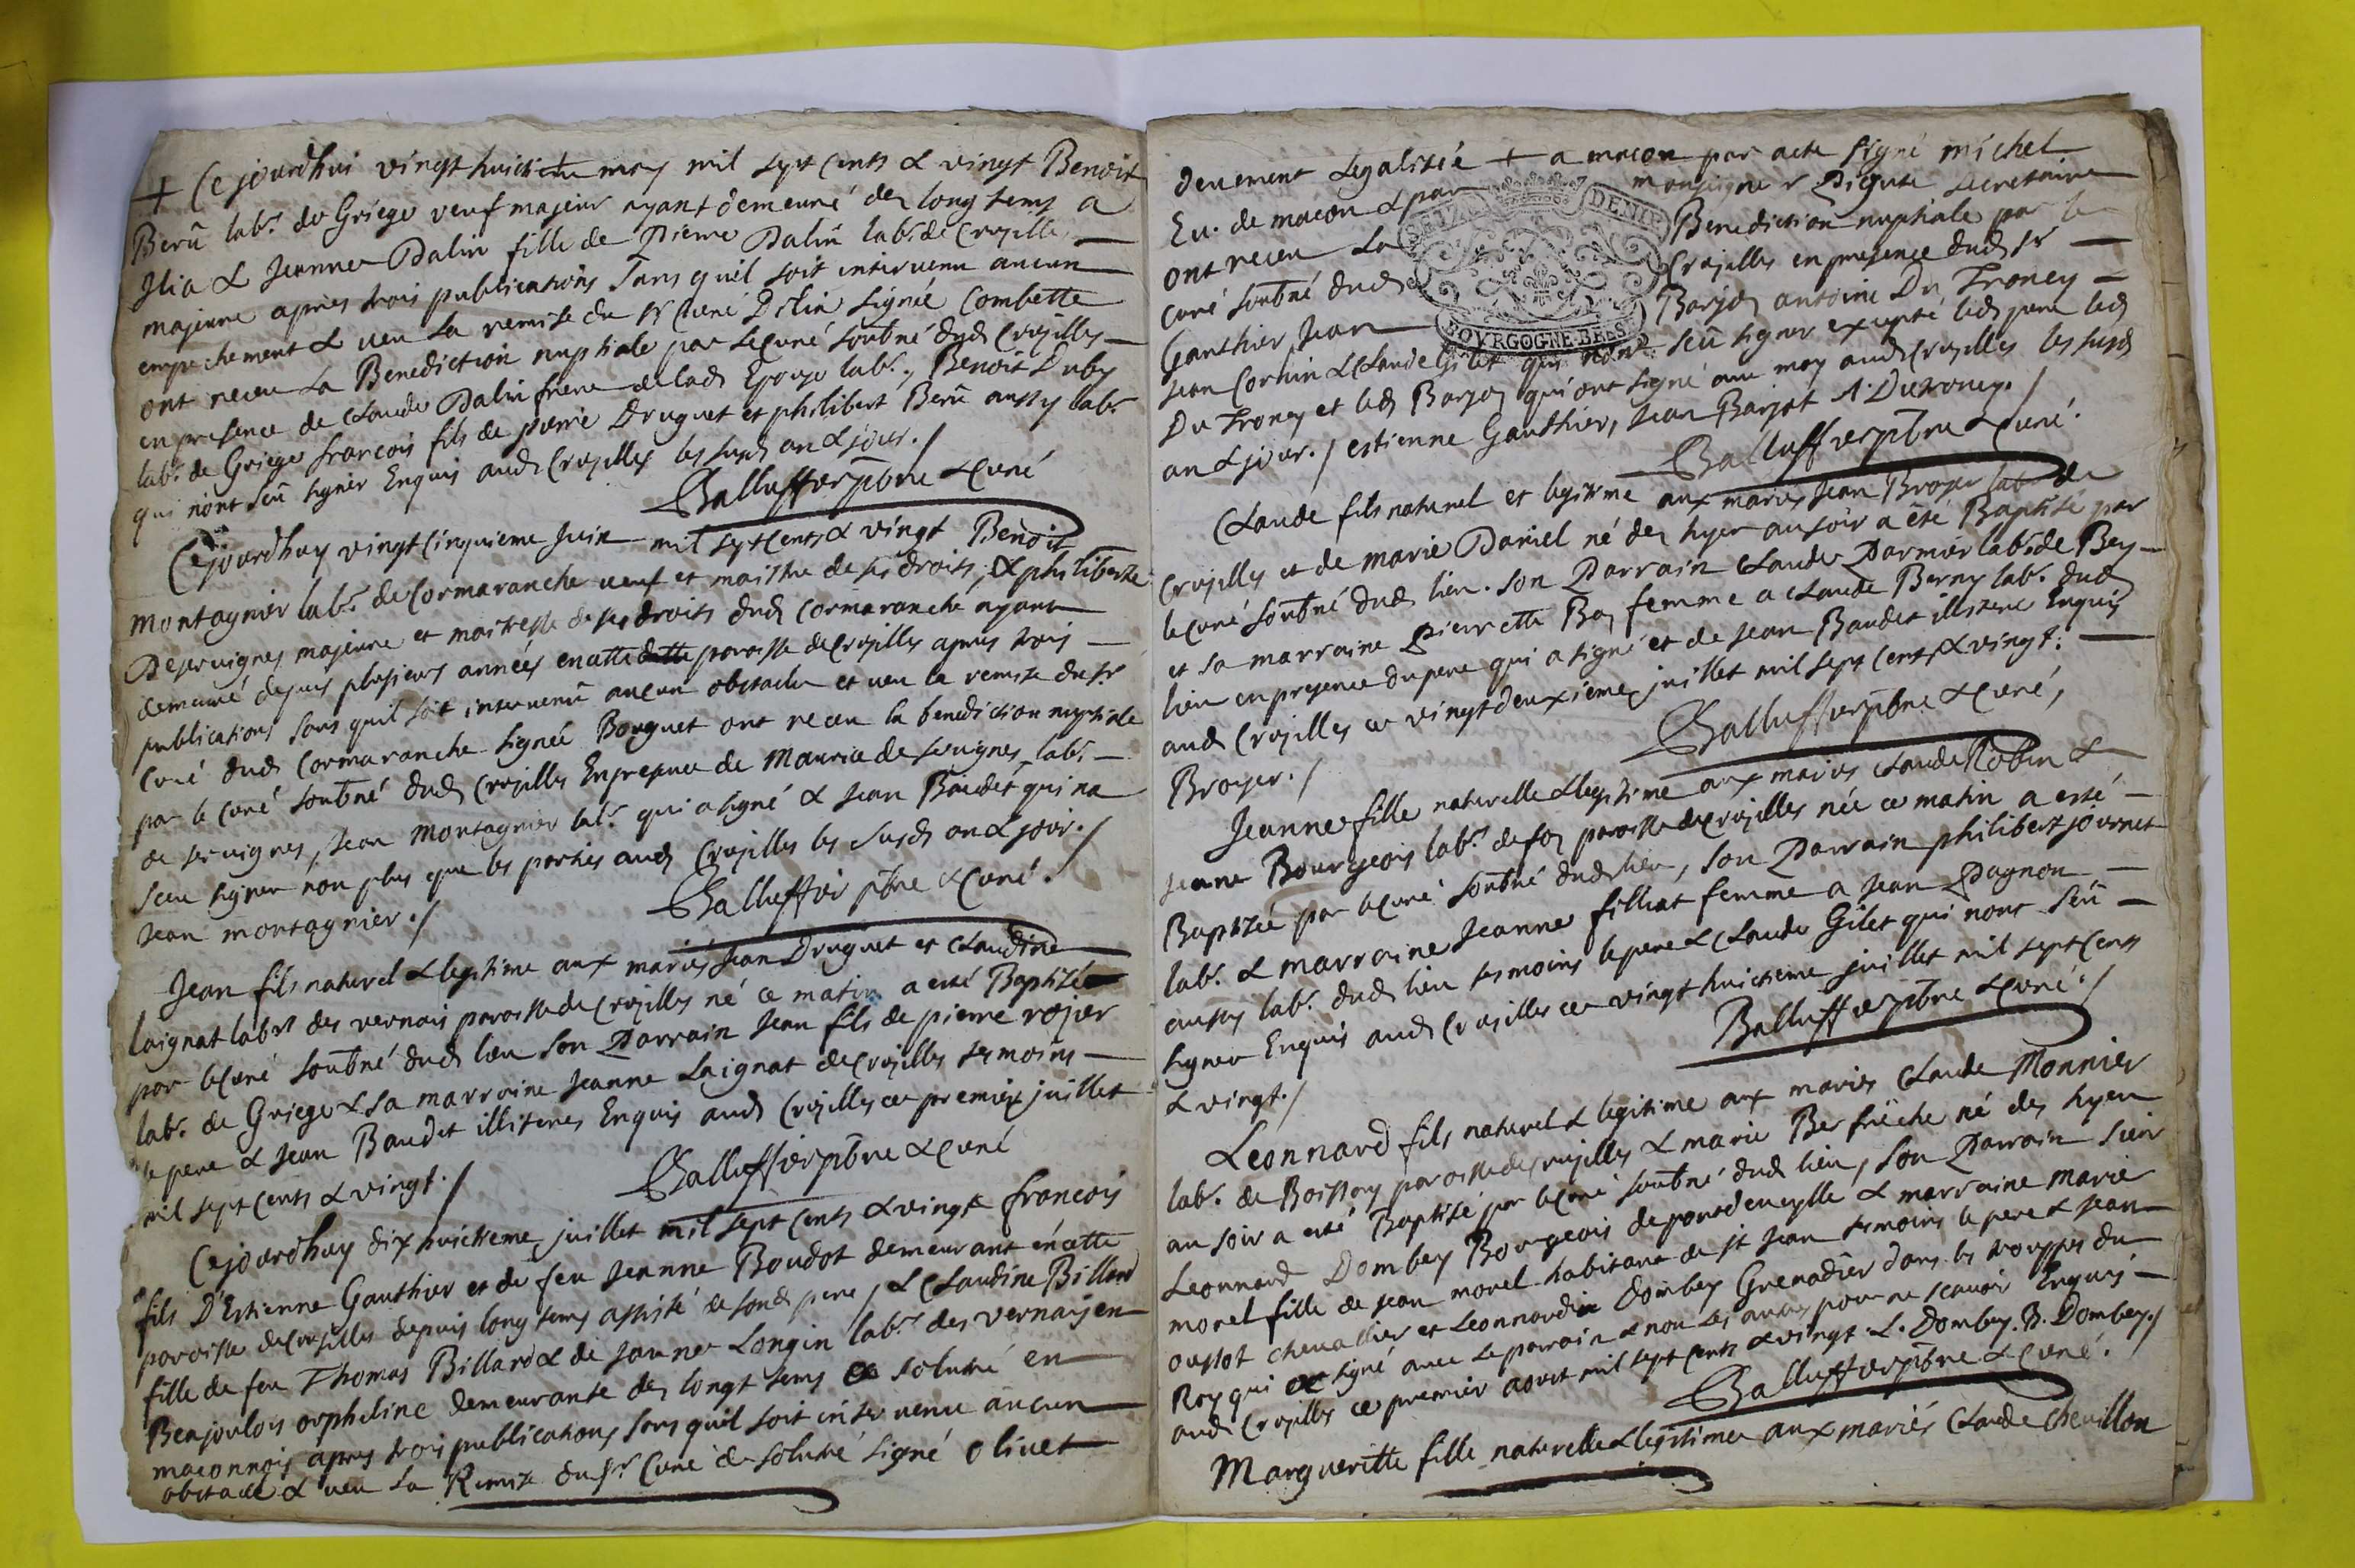 + Cejourdhui vingt huictie may mil sept Cents & vingt Benoit
Berü labr. de Griege veuf majeur ayant demeuré des long tems a
& Jeanne Dalin fille de Pierre Dalin labr. de Crojilles
majeure apres trois publications sans quil soit intervenu aucun
empechement & veu la remise du Sr Curé signée Combette
ont receu la Benediction nuptiale par le Curé soubné dud Crojilles
en presence de Claude Dalin frere de lad Epouse labr., Benoit Duby
labr. de Griege francois fils de pierre Druguet et philibert Berü aussy labr.
qui n'ont sçû signer Enquis aud Crojilles les susd an & jour./
Balluffier pbre & Curé
Cejourdhuy vingt Cinquieme Juin mil sept Cents & vingt Benoit
Montagnier labr. de Cormaranche veuf et maistre de ses droits, & philiberte
Deservignes majeure et maitresse de ses droits dud Cormaranche ayant
demeuré depuis plusieurs années en cette paroisse de Crojilles apres trois
publications sans quil soit intervenü aucun obstacle et veu la remise du Sr
Curé dud Cormaranche signée Bouguet ont receu la benediction nuptiale
par le Curé soubné dud Crojilles En presence de Maurice de servignes labr.
de servignes, Jean Montagnier labr. qui a signé & Jean Baudet qui na
sceu signer non plus que les parties aud Crojilles les susd an & jour./
Jean montagnier./ Balluffier pbre & Curé./
Jean fils naturel & legitime aux mariés Jean Druguet et Claudine
laignat labrs des vernais paroisse de Crojilles né ce matin a esté Baptizé
par le Curé soubné dud lieu son Parrain Jean fils de pierre rojier
labr. de Griege & sa marraine Jeanne Laignat de Crojilles tesmoins
le pere & Jean Baudet illiteres Enquis aud Crojilles ce premier juillet
mil sept Cents & vingt./ Balluffier pbre & Curé
Cejourdhuy dix huictieme juillet mil sept Cents & vingt francois
fils D'Estienne Gauthier et de feu Jeanne Boudot demeurant en cette
paroisse de Crojilles depuis long tems assisté de sond pere, & Claudine Billard
fille de feu Thomas Billard & de Jeanne Longin labrs des vernais en
Beaujoulois orpheline demeurante des longt tems a solutré en
maconnois apres trois publications sans quil soit intervenu aucun
obstacle & veu la Remise du Sr Curé de solutré signé olivet
deuement legalisée + a macon par acte signé michel
Ev. de macon & par monseigneur secretaire
ont receu la Benediction nuptiale par le
curé soubné dud Crojilles en presence dud Sr
Gauthier, Jean Barjot antoine Du Troncy
Jean Cornin & Claude Gilet qui n'ont sçû signer excepté led pere led
Du Troncy et led Barjot qui ont signé avec moy aud Crojilles les susd
an & jour./ estienne Gauthier, Jean Barjot A. Dutroncy./
Balluffier pbre & Curé.
Claude fils naturel et legitime aux mariés Jean Broyer labr de
Crojilles et de marie Daniel né des hyer au soir a été Baptisé par
le Curé soubné dud lieu. son Parrain Claude Parmier labr. de Bey
et sa marraine Pierrette Bay femme a Claude Berny labr. dud
lieu en presence du pere qui a signé et de Jean Baudet illitere Enquis
aud Crojilles ce vingt deuxieme juillet mil sept Cents & vingt.
Broyer./ Balluffier pbre & Curé,
Jeanne fille naturelle & legitime aux mariés Claude Robin &
Jeanne Bourgeois labrs de foy paroisse de Crojilles née ce matin a esté
Baptizée par le Curé soubné dud lieu, son Parrain philibert journet
labr. & marraine Jeanne filliat femme a Jean Pagnon
aussy labr. dud lieu tesmoins le pere & Claude Gilet qui n'ont sçû
signer Enquis aud Crojilles ce vingt huictieme juillet mil sept Cents
& vingt./ Balluffier pbre & Curé./
Leonnard fils naturel & legitime aux mariés Claude Monnier
labr. de Boissey paroisse de Crojilles & marie Berfriche né des hyer
au soir a esté Baptisé par le Curé soubné dud lieu, son Parrain sieur
Leonnard Dombey Bourgeois de pontdeveylle & marraine marie
morel fille de Jean morel habitant de st Jean tesmoins le pere & Jean
ouplot chevallier et Leonnard Dombey Grenadier dans les trouppes du
Roy qui a signé avec le parrain & non les autres pour ne scavoir Enquis
aud Crojilles ce premier aoust mil sept Cents & vingt. L. Dombey. B. Dombey./
Balluffier pbre & Curé.
Margueritte fille naturelle & legitime aux mariés Claude Chevillon
BOVRGOGNE-BRES